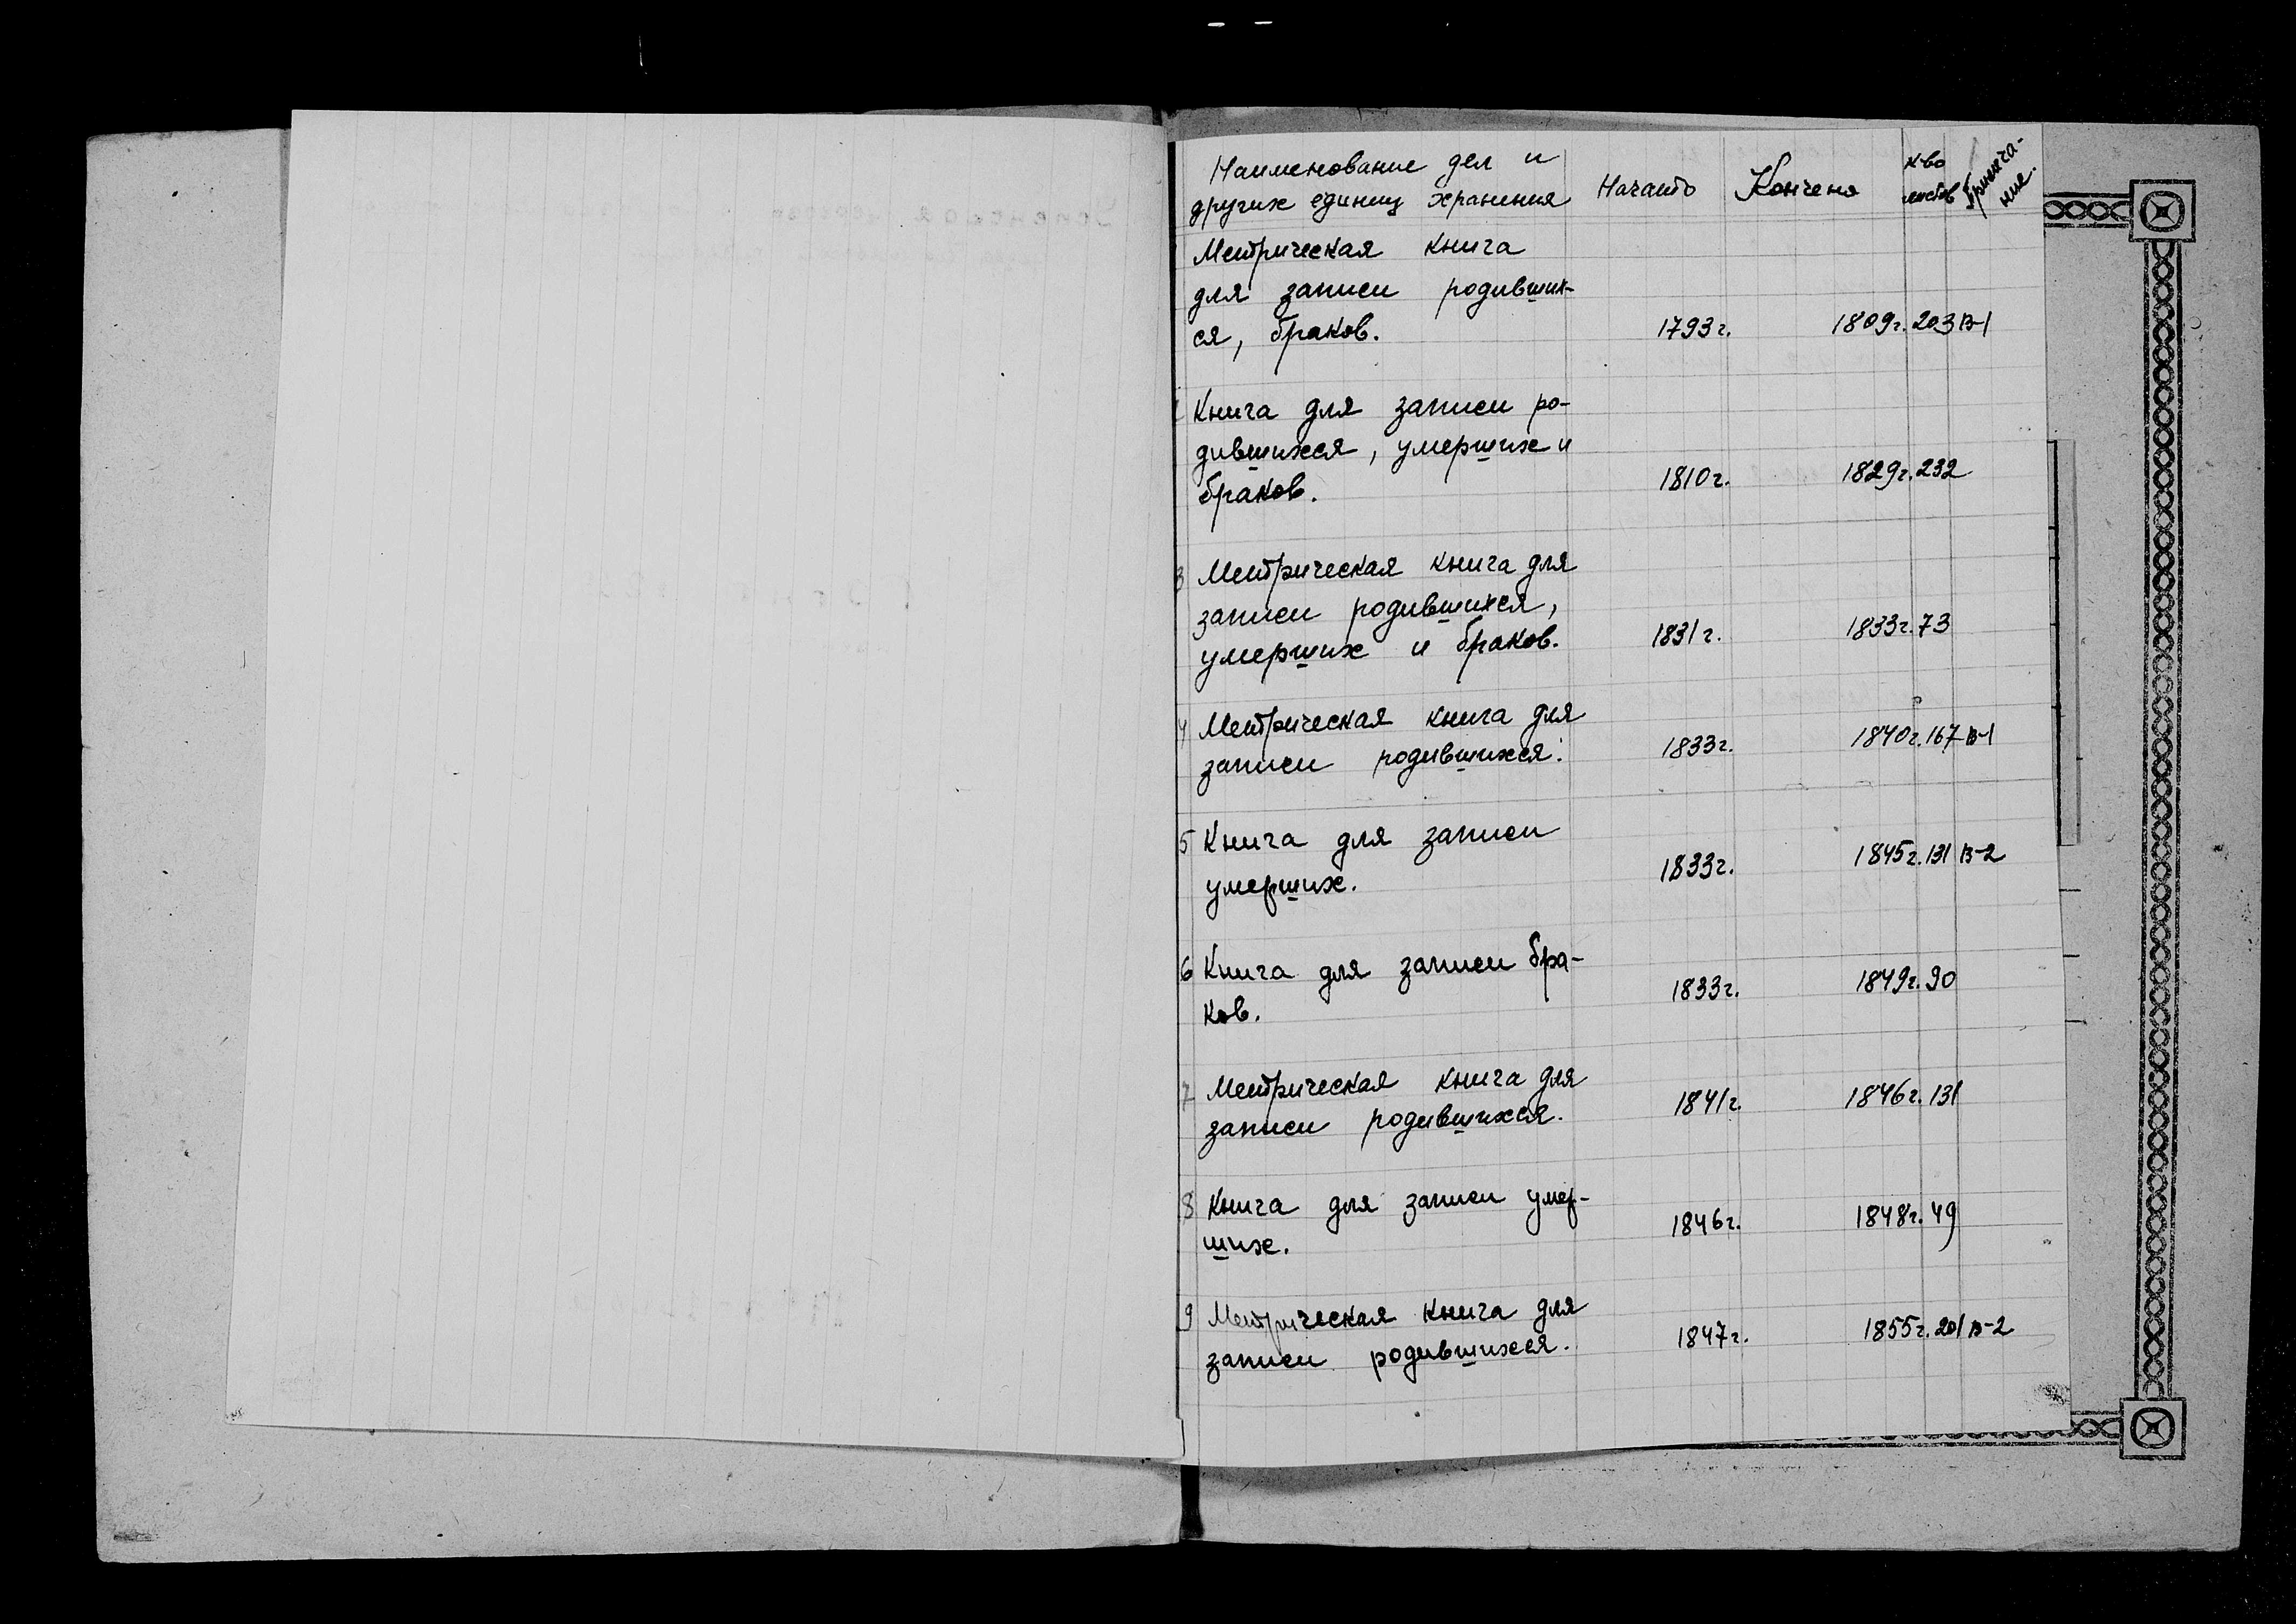 Наименование дел и
других единиц хранения Начато Кончена к-во листов Примеча-
ние.
Метрическая книга
для записи родивших-
ся, браков. 1793г. 1809г. 203 В-1
Книга для записи ро-
дившихся, умерших и
браков. 1810г. 1829г. 232
3 Метрическая книга для
записи родившихся,
умерших и браков. 1831г. 1833г. 73
4 Метрическая книга для
записи родившихся. 1833г. 1840г. 167 В-1
5 Книга для записи
умерших. 1833г. 1845г. 131 В-2
6 Книга для записи бра-
ков. 1833г. 1849г. 90
7 Метрическая книга для
записи родившихся. 1841г. 1846г. 131
8 Книга для записи умер-
ших. 1846г. 1848г. 49
9 Метрическая книга для
записи родившихся. 1847г. 1855г. 201 В-2